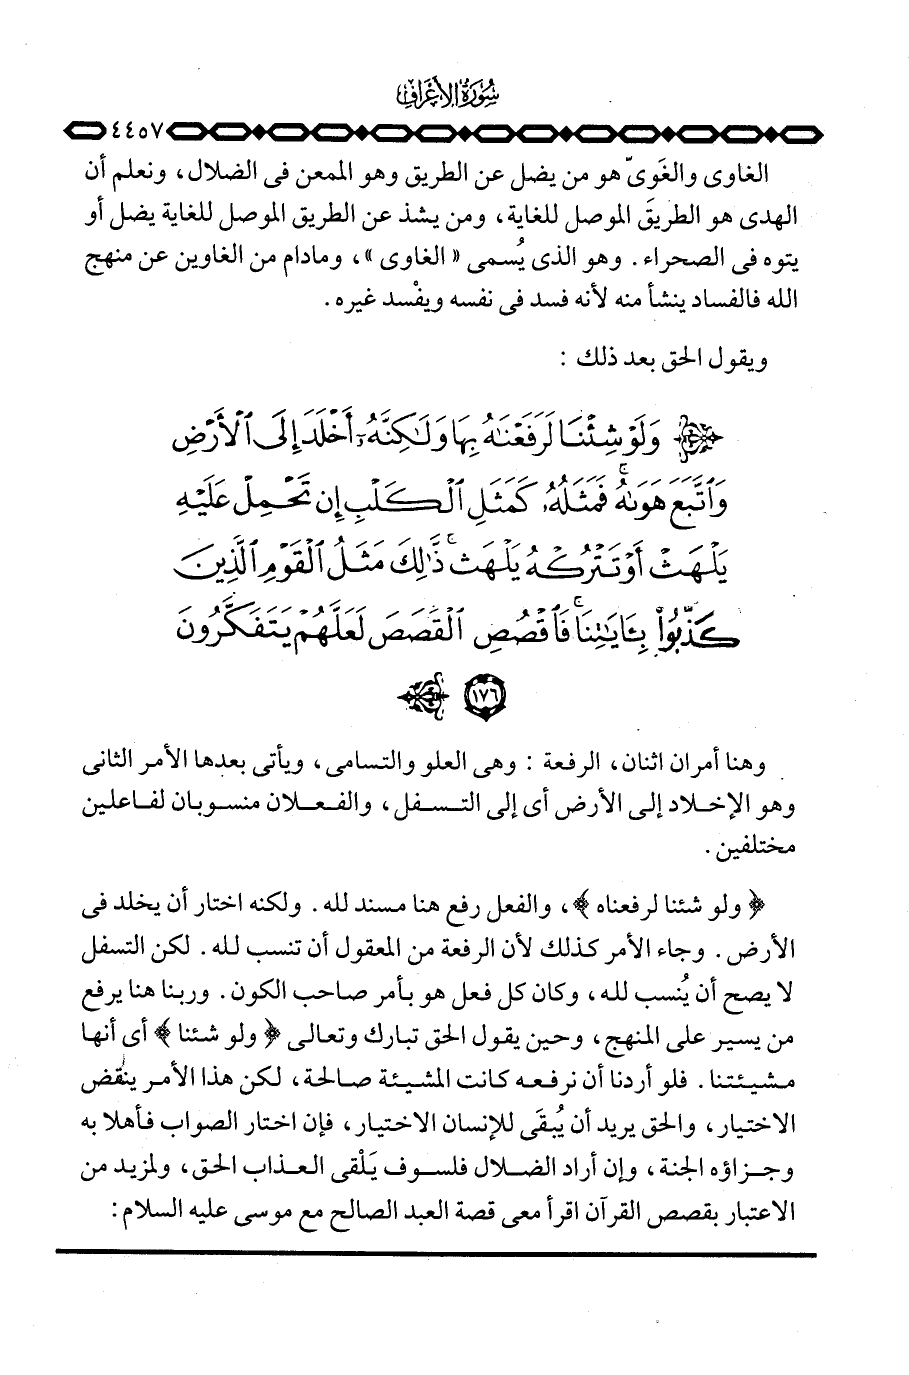 سُورَةُ الأَعْرَافِ
٤٤٥٧
الغاوى والغَوىّ هو من يضل عن الطريق وهو الممعن فى الضلال، ونعلم أن
الهدى هو الطريقَ الموصل للغاية، ومن يشذ عن الطريق الموصل للغاية يضل أو
يتوه فى الصحراء. وهو الذى يُسمى «الغاوى»، ومادام من الغاوين عن منهج
الله فالفساد ينشأ منه لأنه فسد فى نفسه ويفْسد غيره.
ويقول الحق بعد ذلك :
وَلَوْ شِئْنَا لَرَفَعْنَٰهُ بِهَا وَلَٰكِنَّهُۥٓ أَخْلَدَ إِلَى ٱلْأَرْضِ
وَٱتَّبَعَ هَوَىٰهُ ۚ فَمَثَلُهُۥ كَمَثَلِ ٱلْكَلْبِ إِن تَحْمِلْ عَلَيْهِ
يَلْهَثْ أَوْ تَتْرُكْهُ يَلْهَث ۚ ذَّٰلِكَ مَثَلُ ٱلْقَوْمِ ٱلَّذِينَ
كَذَّبُوا۟ بِـَٔايَٰتِنَا ۚ فَٱقْصُصِ ٱلْقَصَصَ لَعَلَّهُمْ يَتَفَكَّرُونَ
١٧٦
وهنا أمران اثنان، الرفعة : وهى العلو والتسامى، ويأتى بعدها الأمر الثانى
وهو الإخلاد إلى الأرض أى إلى التسفل، والفعلان منسوبان لفاعلين
مختلفين.
﴿ ولو شئنا لرفعناه ﴾، والفعل رفع هنا مسند لله. ولكنه اختار أن يخلد فى
الأرض. وجاء الأمر كذلك لأن الرفعة من المعقول أن تنسب لله. لكن التسفل
لا يصح أن يُنسب لله، وكان كل فعل هو بأمر صاحب الكون. وربنا هنا يرفع
من يسير على المنهج، وحين يقول الحق تبارك وتعالى ﴿ ولو شئنا ﴾ أى أنها
مشيئتنا. فلو أردنا أن نرفعه كانت المشيئة صالحة، لكن هذا الأمر ينُقض
الاختيار، والحق يريد أن يُبقَى للإنسان الاختيار، فإن اختار الصواب فأهلا به
وجزاؤه الجنة، وإن أراد الضلال فلسوف يَلْقى العذاب الحق، ولمزيد من
الاعتبار بقصص القرآن اقرأ معى قصة العبد الصالح مع موسى عليه السلام: